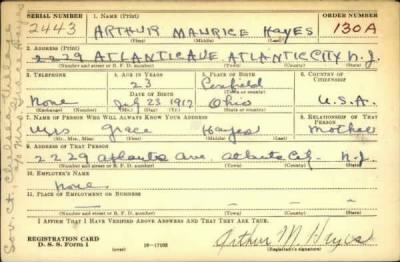 SERIAL NUMBER 1. NAME (Print) ORDER NUMBER
2443 ARTHUR MAURICE HAYES 130A
(First) (Middle) (Last)
2. ADDRESS (Print)
2229 ATLANTIC AVE ATLANTIC CITY N.J.
(Number and street or R. F. D. number) (Town) (County) (State)
3. TELEPHONE 4. AGE IN YEARS 5. PLACE OF BIRTH 6. COUNTRY OF CITIZENSHIP
23
DATE OF BIRTH
None 23 1917 Ohio U.S.A.
7. NAME OF PERSON WHO WILL ALWAYS KNOW YOUR ADDRESS 8. RELATIONSHIP OF THAT PERSON
Mrs Grace Hayes Mother
(Mr., Mrs., Miss) (First) (Middle) (Last)
9. ADDRESS OF THAT PERSON
2229 Atlantic Ave. N.J.
(Number and street or R. F. D. number) (Town) (County) (State)
10. EMPLOYER'S NAME
None
11. PLACE OF EMPLOYMENT OR BUSINESS
(Number and street or R. F. D. number) (Town) (County) (State)
I AFFIRM THAT I HAVE VERIFIED ABOVE ANSWERS AND THAT THEY ARE TRUE.
REGISTRATION CARD
D. S. S. Form 1 (over) 16—17105 Arthur M. Hayes
(Registrant's signature)